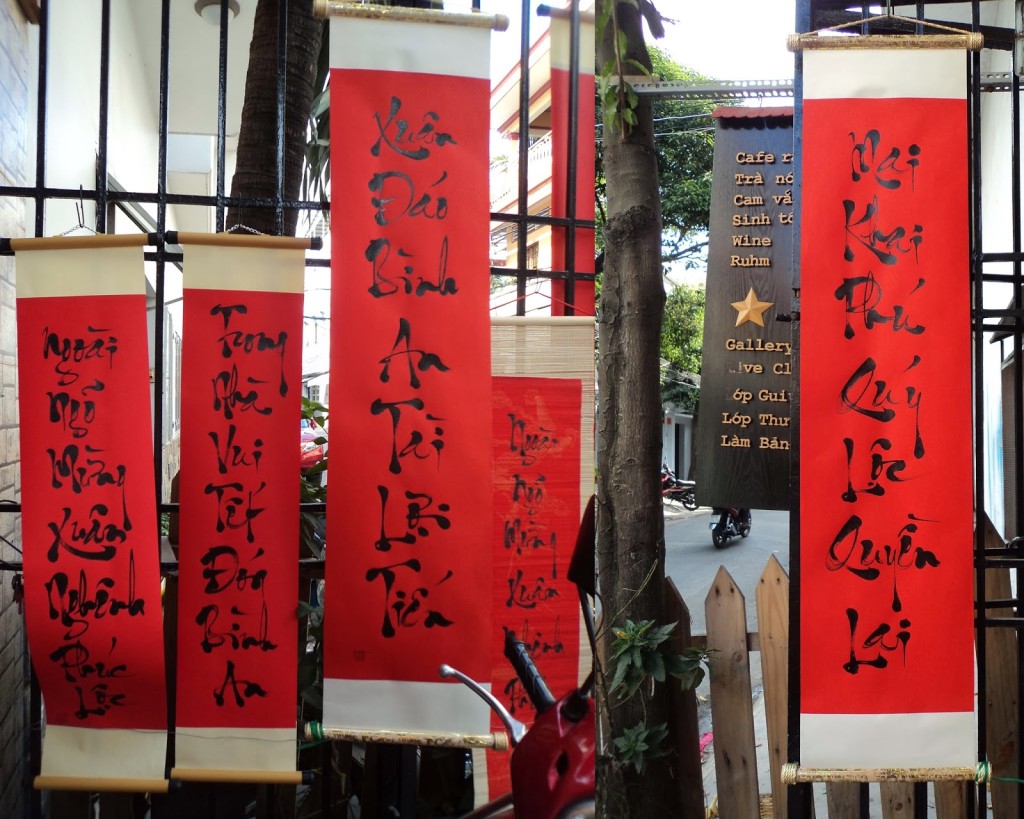 Ngoài
Ngõ
Mừng
Xuân
Nghênh
Phúc
Lộc
Trong
Nhà
Vui
Tết
Đón
Bình
An
Xuân
Đáo
Bình
An
Tài
Lợi
Tiến
Ngoài
Ngõ
Mừng
Xuân
Cafe
Trà
Cam
Sinh tố
Wine
Ruhm
Gallery
Lớp
Lớp
Làm
Mai
Khai
Phú
Quý
Lộc
Quyền
Lai